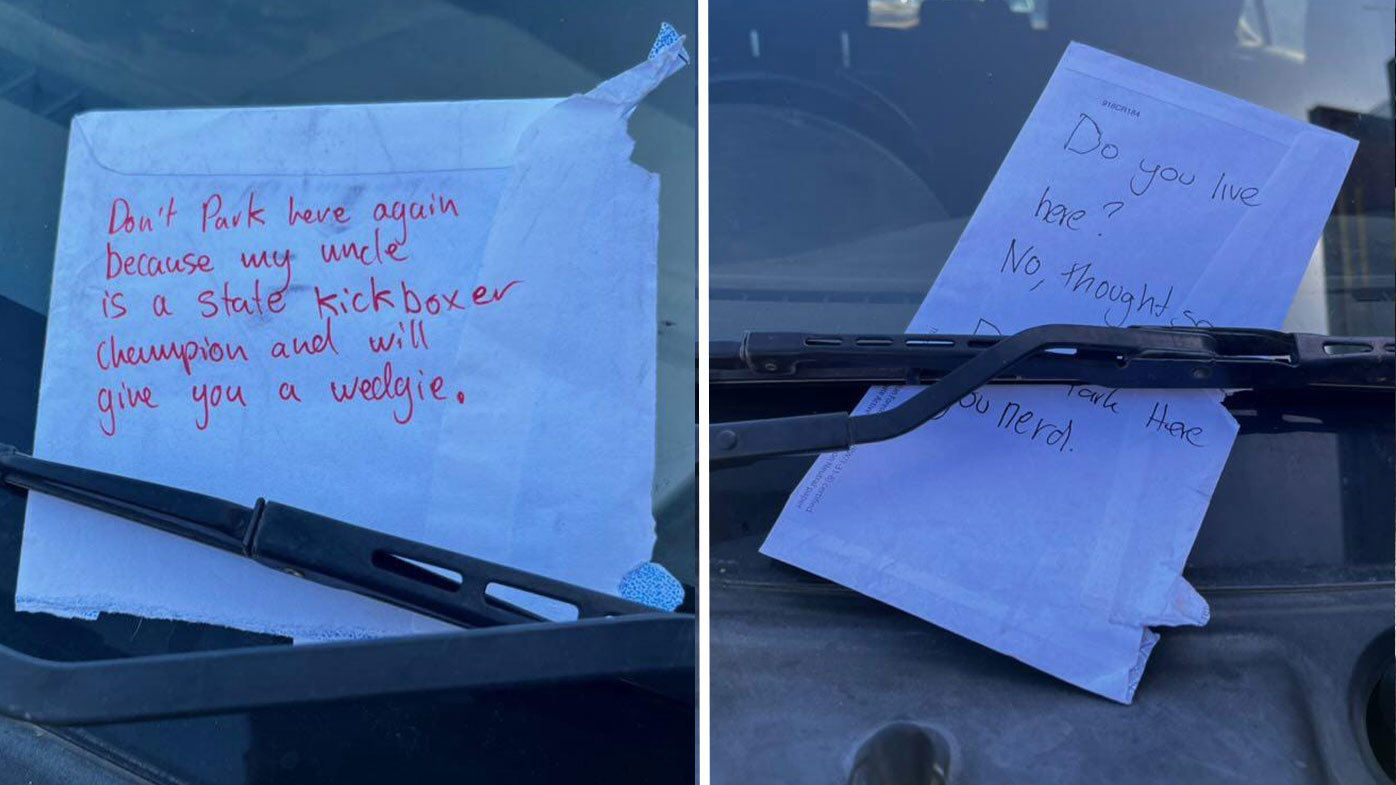 Don't Park here again
because my uncle
is a state kickboxer
champion and will
give you a wedgie.
918CR184
Do you live
here?
No, thought so
Park Here
you nerd.